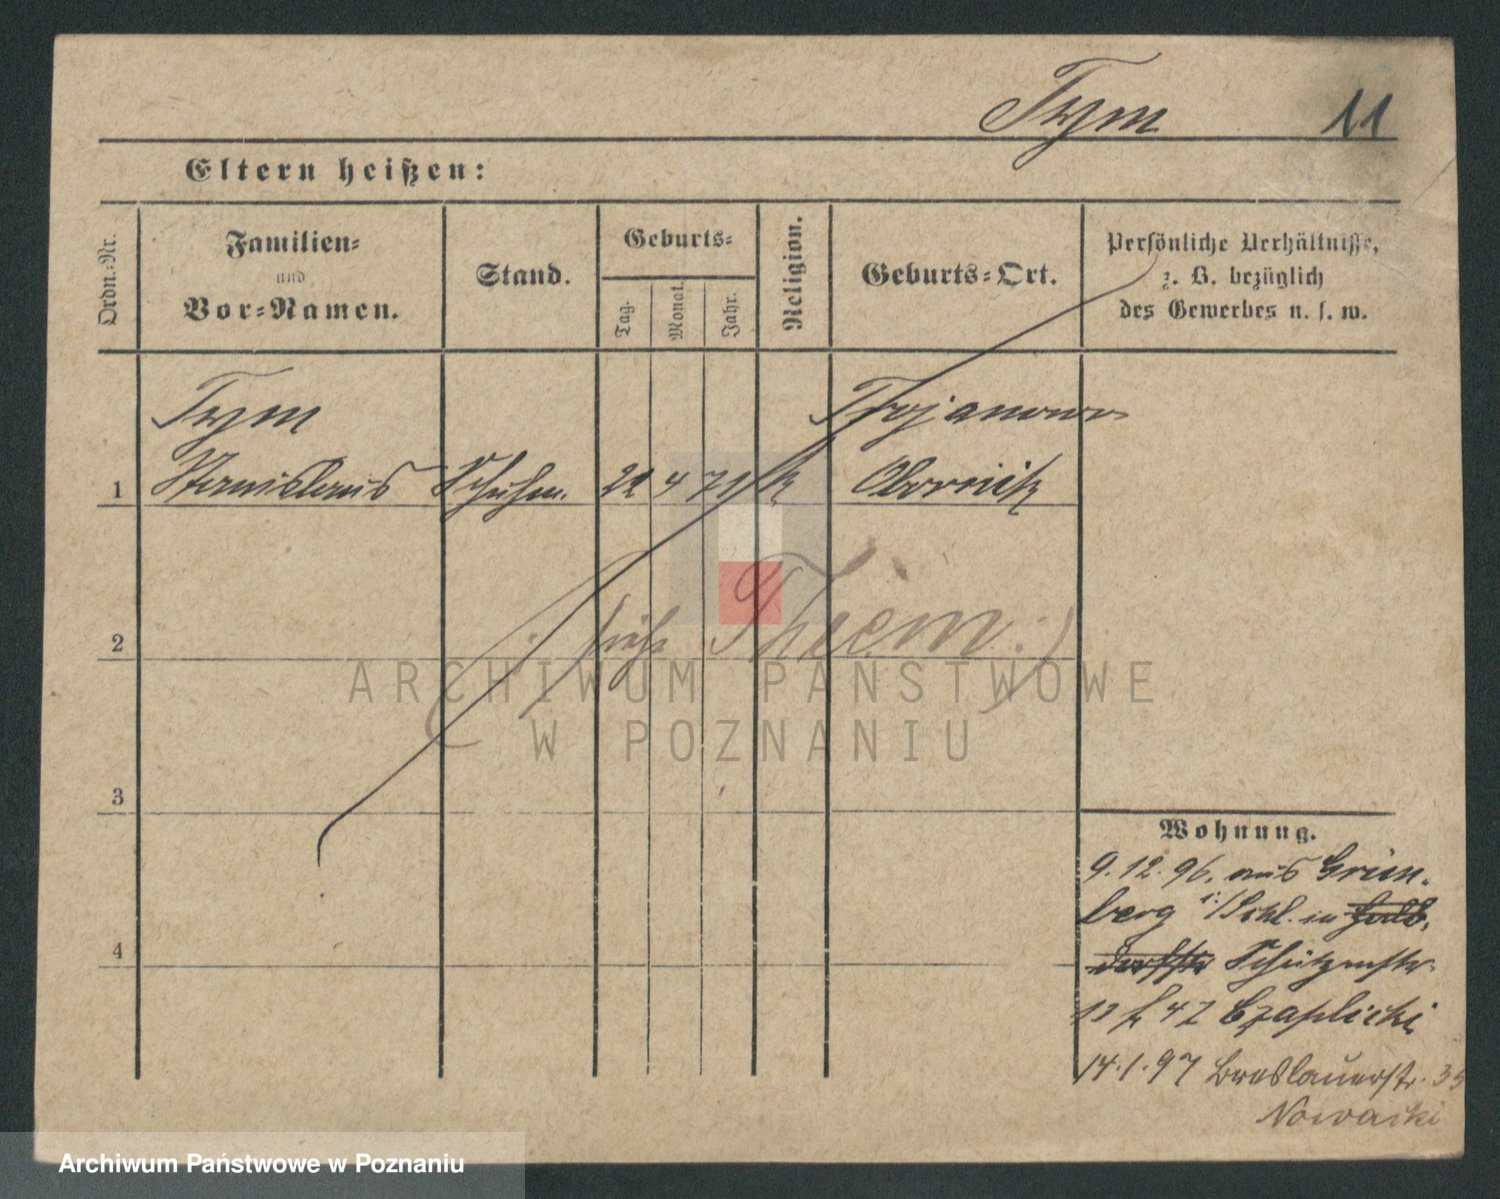 Tym 11
Eltern heißen:
Ordn.-Nr.
Familien-
und
Vor-Namen.
Stand.
Geburts-
Tag.
Monat.
Jahr.
Religion.
Geburts-Ort.
Persönliche Verhältnisse,
z. B. bezüglich
des Gewerbes u. s. w.
Tym Trojanowo
1 Stanislaus Schuhm. 22 4 71 k Obornik
2 Thiem :)
3
4
Wohnung.
9. 12. 96. aus Grün-
berg i/Schl. in
Schützenstr.
Czaplicki
14. 1. 97 Breslauerstr. 35
Nowacki
ARCHIWUM PAŃSTWOWE
W POZNANIU
Archiwum Państwowe w Poznaniu